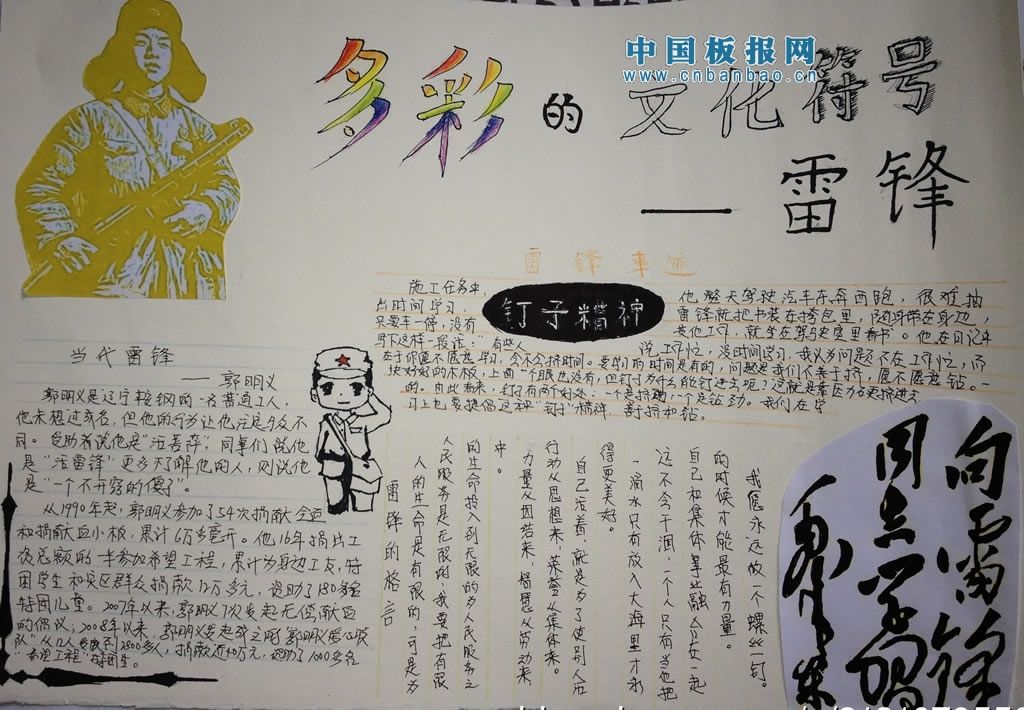 中国板报网
www.cnbanbao.cn
多彩的文化符号
——雷锋
雷锋事迹
钉子精神
施工任务中,
他整天驾驶汽车东奔西跑,很难抽
出时间学习,
雷锋就把书装在挎包里,随身带在身边,
只要车一停,没有
其他工作,就坐在驾驶室里看书。他在日记中
写下这样一段话:"有些人
说工作忙,没时间学习,我认为问题不在工作忙,而
在于你愿不愿意学习,会不会挤时间。要学习的时间是有的,问题是我们不善于挤,愿不愿意钻。一
块好好的木板,上面一个眼也没有,但钉子为什么能钉进去呢?这就是靠压力硬挤进去
的。由此看来,钉子有两个好处:一个是挤劲,一个是钻劲。我们在学
习上也要提倡这种"钉子"精神,善于挤和钻。
当代雷锋
——郭明义
郭明义是辽宁鞍钢的一名普通工人,
他未想过成名,但他的行为让他注定与众不
同。受助者说他是"活菩萨";同事们说他
是"活雷锋";更多不了解他的人,则说他
是"一个不开窍的傻子"。
从1990年起,郭明义参加了54次捐献全血
和捐献血小板,累计6万多毫升。他16年捐出工
资总额的一半参加希望工程,累计为身边工友,特
困学生和灾区群众捐款12万多元,资助了180多名
特困儿童。2007年以来,郭明义7次发起无偿献血
的倡议;2008年以来,郭明义发起成立的郭明义爱心联
队"从12人发展到2800多人,捐款近40万元,资助了1000多名
"希望工程"特困生。
我愿永远做一个螺丝钉。
的时候才能最有力量。
自己和集体事业融合在一起
这不会干涸,一个人只有当他把
一滴水只有放入大海里才永
得更美好。
自己活着,就是为了使别人活
行动从思想来,荣誉从集体来。
力量从团结来,智慧从劳动来,
中。
的生命投入到无限的为人民服务之
人民服务是无限的,我要把有限
人的生命是有限的,可是为
雷锋的格言
向雷锋
同志学习
毛泽东